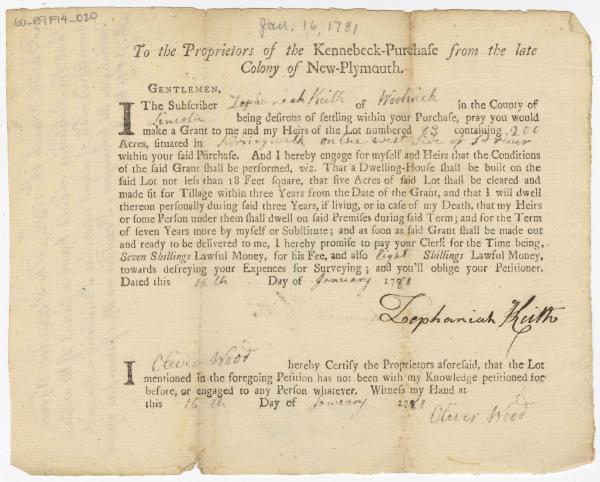 60-09F14-020
Jan. 16, 1781
To the Proprietors of the Kennebeck-Purchase from the late
Colony of New-Plymouth.
GENTLEMEN,
I The Subscriber Zephaniah Keith of Woolwich in the County of
Lincoln being desirous of settling within your Purchase, pray you would
make a Grant to me and my Heirs of the Lot numbered 63 containing 200
Acres, situated in Norridgwalk on the west Side of Sd river
within your said Purchase. And I hereby engage for myself and Heirs that the Conditions
of the said Grant shall be performed, viz. That a Dwelling-House shall be built on the
said Lot not less than 18 Feet square, that five Acres of said Lot shall be cleared and
made fit for Tillage within three Years from the Date of the Grant, and that I will dwell
thereon personally during said three Years, if living, or in case of my Death, that my Heirs
or some Person under them shall dwell on said Premises during said Term; and for the Term
of seven Years more by myself or Substitute; and as soon as said Grant shall be made out
and ready to be delivered to me, I hereby promise to pay your Clerk for the Time being,
Seven Shillings Lawful Money, for his Fee, and also Eight Shillings Lawful Money,
towards defreying your Expences for Surveying; and you'll oblige your Petitioner.
Dated this 16th Day of January 1781
Zephaniah Keith
I Oliver Wood hereby Certify the Proprietors aforesaid, that the Lot
mentioned in the foregoing Petition has not been with my Knowledge petitioned for
before, or engaged to any Person whatever. Witness my Hand at
this 16th Day of January 1781
Oliver Wood